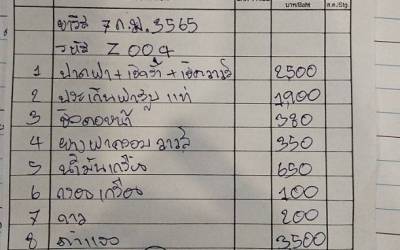 บาท/Baht ส.ต./Stg.
ยารีส 7 ก.พ. 2565
วยสี 2004
1 ปาดฝา + เช็ครั่ว + เช็ควาล์ว 2500
2 ประเก็นฝาสูบ แท้ 1900
3 ซีลคอหน้า 380
4 ยางฝาครอบวาล์ว 350
5 น้ำมันเครื่อง 650
6 กรองเครื่อง 100
7 กาว 200
8 ค่าแรง 3500